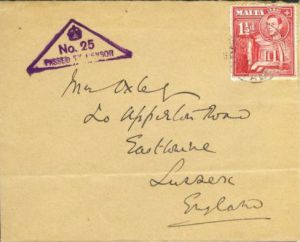 No. 25
PASSED BY CENSOR
MALTA
1½d
Mrs Oxley
20 Apperton Road
Eastbourne
Sussex
England